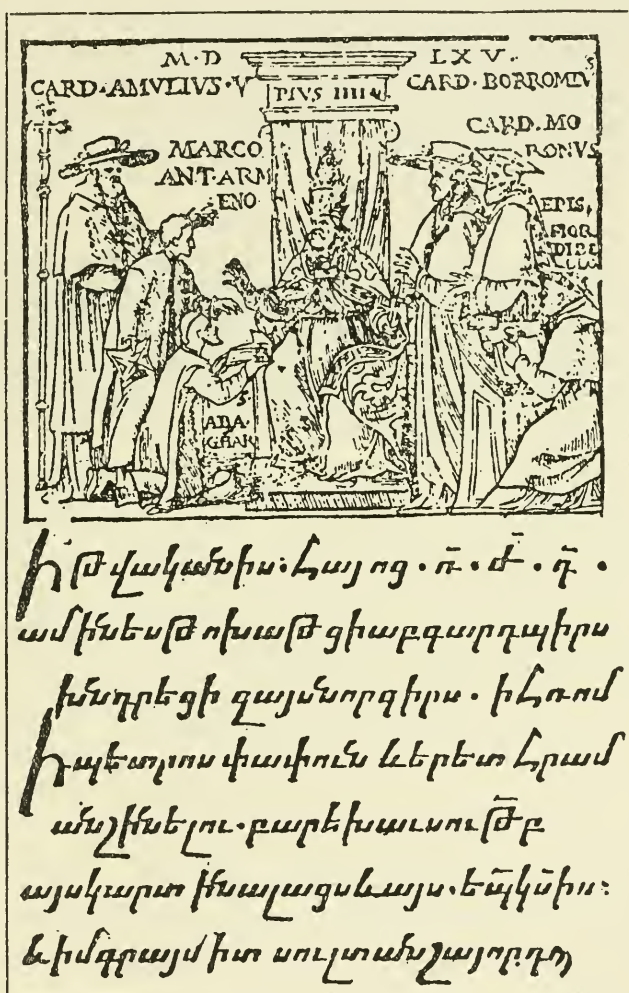 M·D LXV·
CARD·AMVLIVS·V PIVS IIII CARD·BORROMEVS
MARCO ANT·ARMENO
CARD·MORONVS
EPIS,
S ABAGHAR
Ի թվականիս։ Հայոց · ռ̄ · ժ̄ · դ̄ ·
ամ ինես թոխաթցի աբգար դպիրս
խնդրեցի զայս նոր գիրս · ի հռոմ
Ի պետրոս փափուն և երետ հրամ
ան շինելու · բարեխաւսութ̄բ
այս կարտինալացս և այս · եպ̄կս̄իս։
և իմ գրայմիտ սուլտանշայ